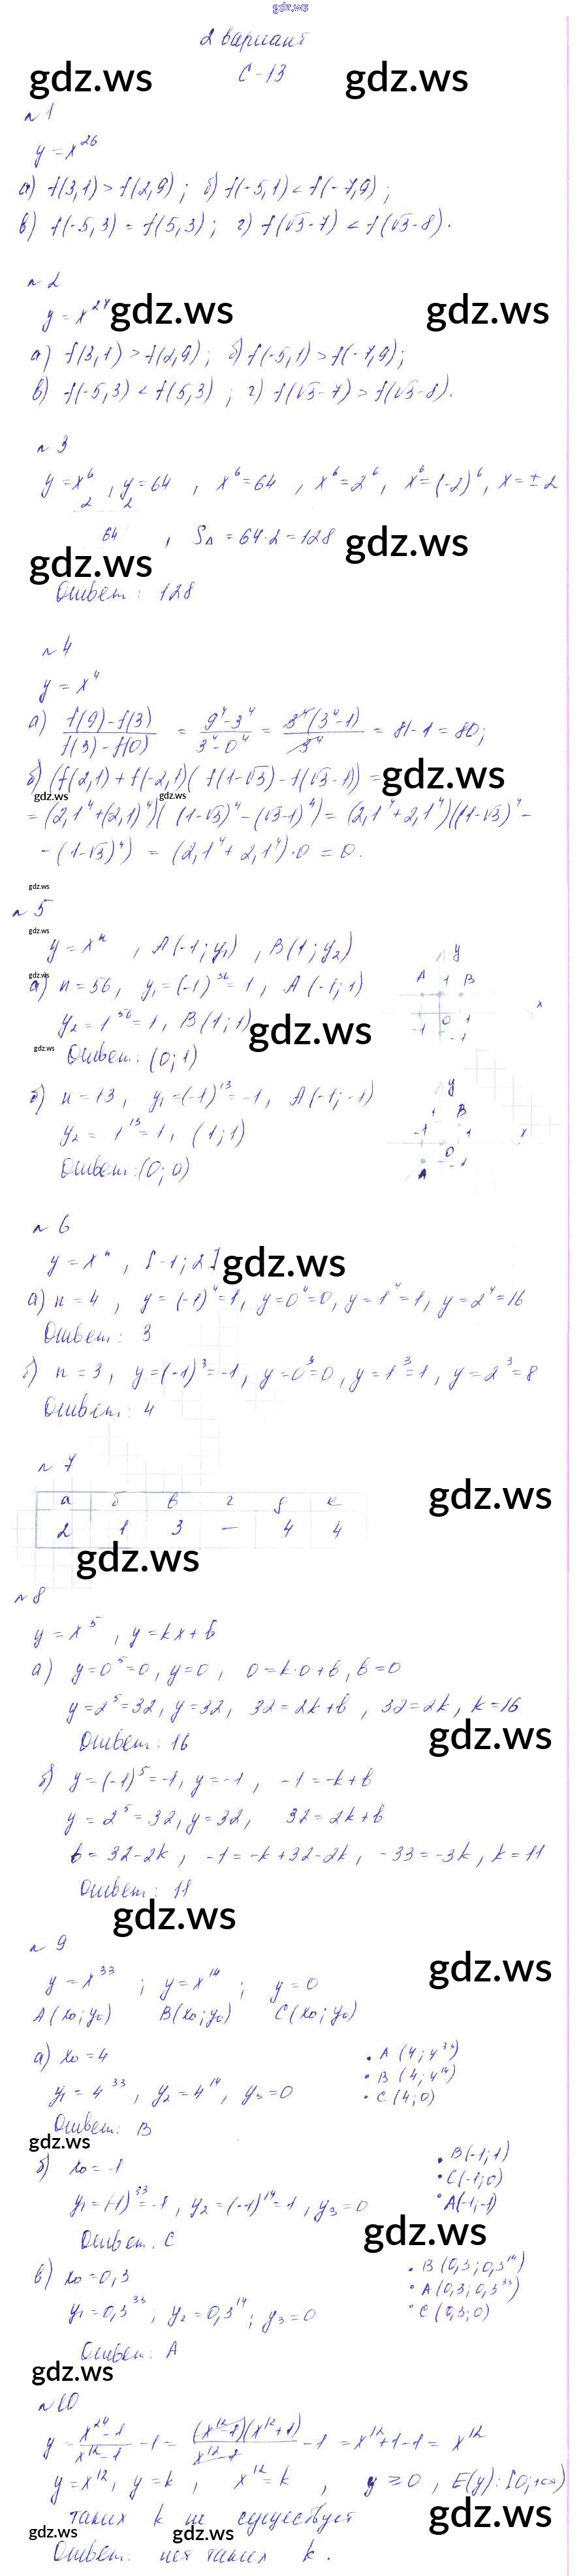 gdz.ws
2 вариант
С-13
gdz.ws gdz.ws
№1
y = x^26
а) f(3,1) > f(2,9); б) f(-5,1) < f(-7,9);
в) f(-5,3) = f(5,3); г) f(√3-7) < f(√3-8).
№2
y = x^27
gdz.ws gdz.ws
а) f(3,1) > f(2,9); б) f(-5,1) > f(-7,9);
в) f(-5,3) < f(5,3); г) f(√3-7) > f(√3-8).
№3
y = x^6, y = 64, x^6 = 64, x^6 = 2^6, x^6 = (-2)^6, x = ±2
2 2
64, S_Δ = 64·2 = 128
gdz.ws gdz.ws
Ответ: 128
№4
y = x^4
а) (f(9) - f(3))/(f(3) - f(0)) = (9^4 - 3^4)/(3^4 - 0^4) = 3^4(3^4 - 1)/3^4 = 81 - 1 = 80;
б) (f(2,1) + f(-2,1)( f(1-√3) - f(√3-1)) =
gdz.ws
gdz.ws gdz.ws
= (2,1^4 + (2,1)^4)( (1-√3)^4 - (√3-1)^4) = (2,1^4 + 2,1^4)((1-√3)^4 -
- (1-√3)^4) = (2,1^4 + 2,1^4)·0 = 0.
gdz.ws
№5
gdz.ws
y = x^n, A(-1; y₁), B(1; y₂)
gdz.ws
а) n = 56, y₁ = (-1)^56 = 1, A(-1; 1)
y₂ = 1^56 = 1, B(1; 1)
y
A 1 B
x
-1 0 1
-1
gdz.ws
gdz.ws
Ответ: (0; 1)
б) n = 13, y₁ = (-1)^13 = -1, A(-1; -1)
y₂ = 1^13 = 1, (1; 1)
Ответ: (0; 0)
y
1 B
-1 1 x
0
A -1
№6
y = x^n, [-1; 2]
gdz.ws
а) n = 4, y = (-1)^4 = 1, y = 0^4 = 0, y = 1^4 = 1, y = 2^4 = 16
Ответ: 3
б) n = 3, y = (-1)^3 = -1, y = 0^3 = 0, y = 1^3 = 1, y = 2^3 = 8
Ответ: 4
№7
gdz.ws
а б в г д е
2 1 3 — 4 4
gdz.ws
№8
y = x^5, y = kx + b
а) y = 0^5 = 0, y = 0, 0 = k·0 + b, b = 0
y = 2^5 = 32, y = 32, 32 = 2k + b, 32 = 2k, k = 16
gdz.ws
Ответ: 16
б) y = (-1)^5 = -1, y = -1, -1 = -k + b
y = 2^5 = 32, y = 32, 32 = 2k + b
b = 32 - 2k, -1 = -k + 32 - 2k, -33 = -3k, k = 11
Ответ: 11
gdz.ws
№9
gdz.ws
y = x^33; y = x^14; y = 0
A(x₀; y₀) B(x₀; y₀) C(x₀; y₀)
а) x₀ = 4
y₁ = 4^33, y₂ = 4^14, y₃ = 0
• A (4; 4^33)
• B (4; 4^14)
• C (4; 0)
Ответ: B
gdz.ws
б) x₀ = -1
y₁ = (-1)^33 = -1, y₂ = (-1)^14 = 1, y₃ = 0
• B(-1; 1)
• C(-1; 0)
• A(-1; -1)
gdz.ws
Ответ: C
в) x₀ = 0,3
y₁ = 0,3^33; y₂ = 0,3^14; y₃ = 0
• B (0,3; 0,3^14)
• A (0,3; 0,3^33)
• C (0,3; 0)
Ответ: A
gdz.ws
№10
y = (x^24 - 1)/(x^12 - 1) - 1 = (x^12 - 1)(x^12 + 1)/(x^12 - 1) - 1 = x^12 + 1 - 1 = x^12
y = x^12, y = k, x^12 = k, y ≥ 0, E(y): [0; +∞)
gdz.ws
таких k не существует
gdz.ws gdz.ws
Ответ: нет таких k.